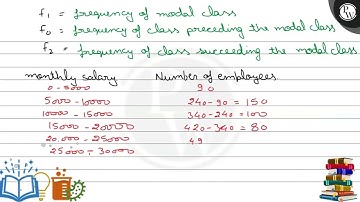 f₁ = frequency of modal class
f₀ = frequency of class preceding the modal class
f₂ = frequency of class succeeding the modal class
monthly salary Number of employees.
0-5000 90
5000-10000 240-90 = 150
10000-15000 340-240 = 100
15000-20000 420-340 = 80
20,000-25000 49
25000-30000